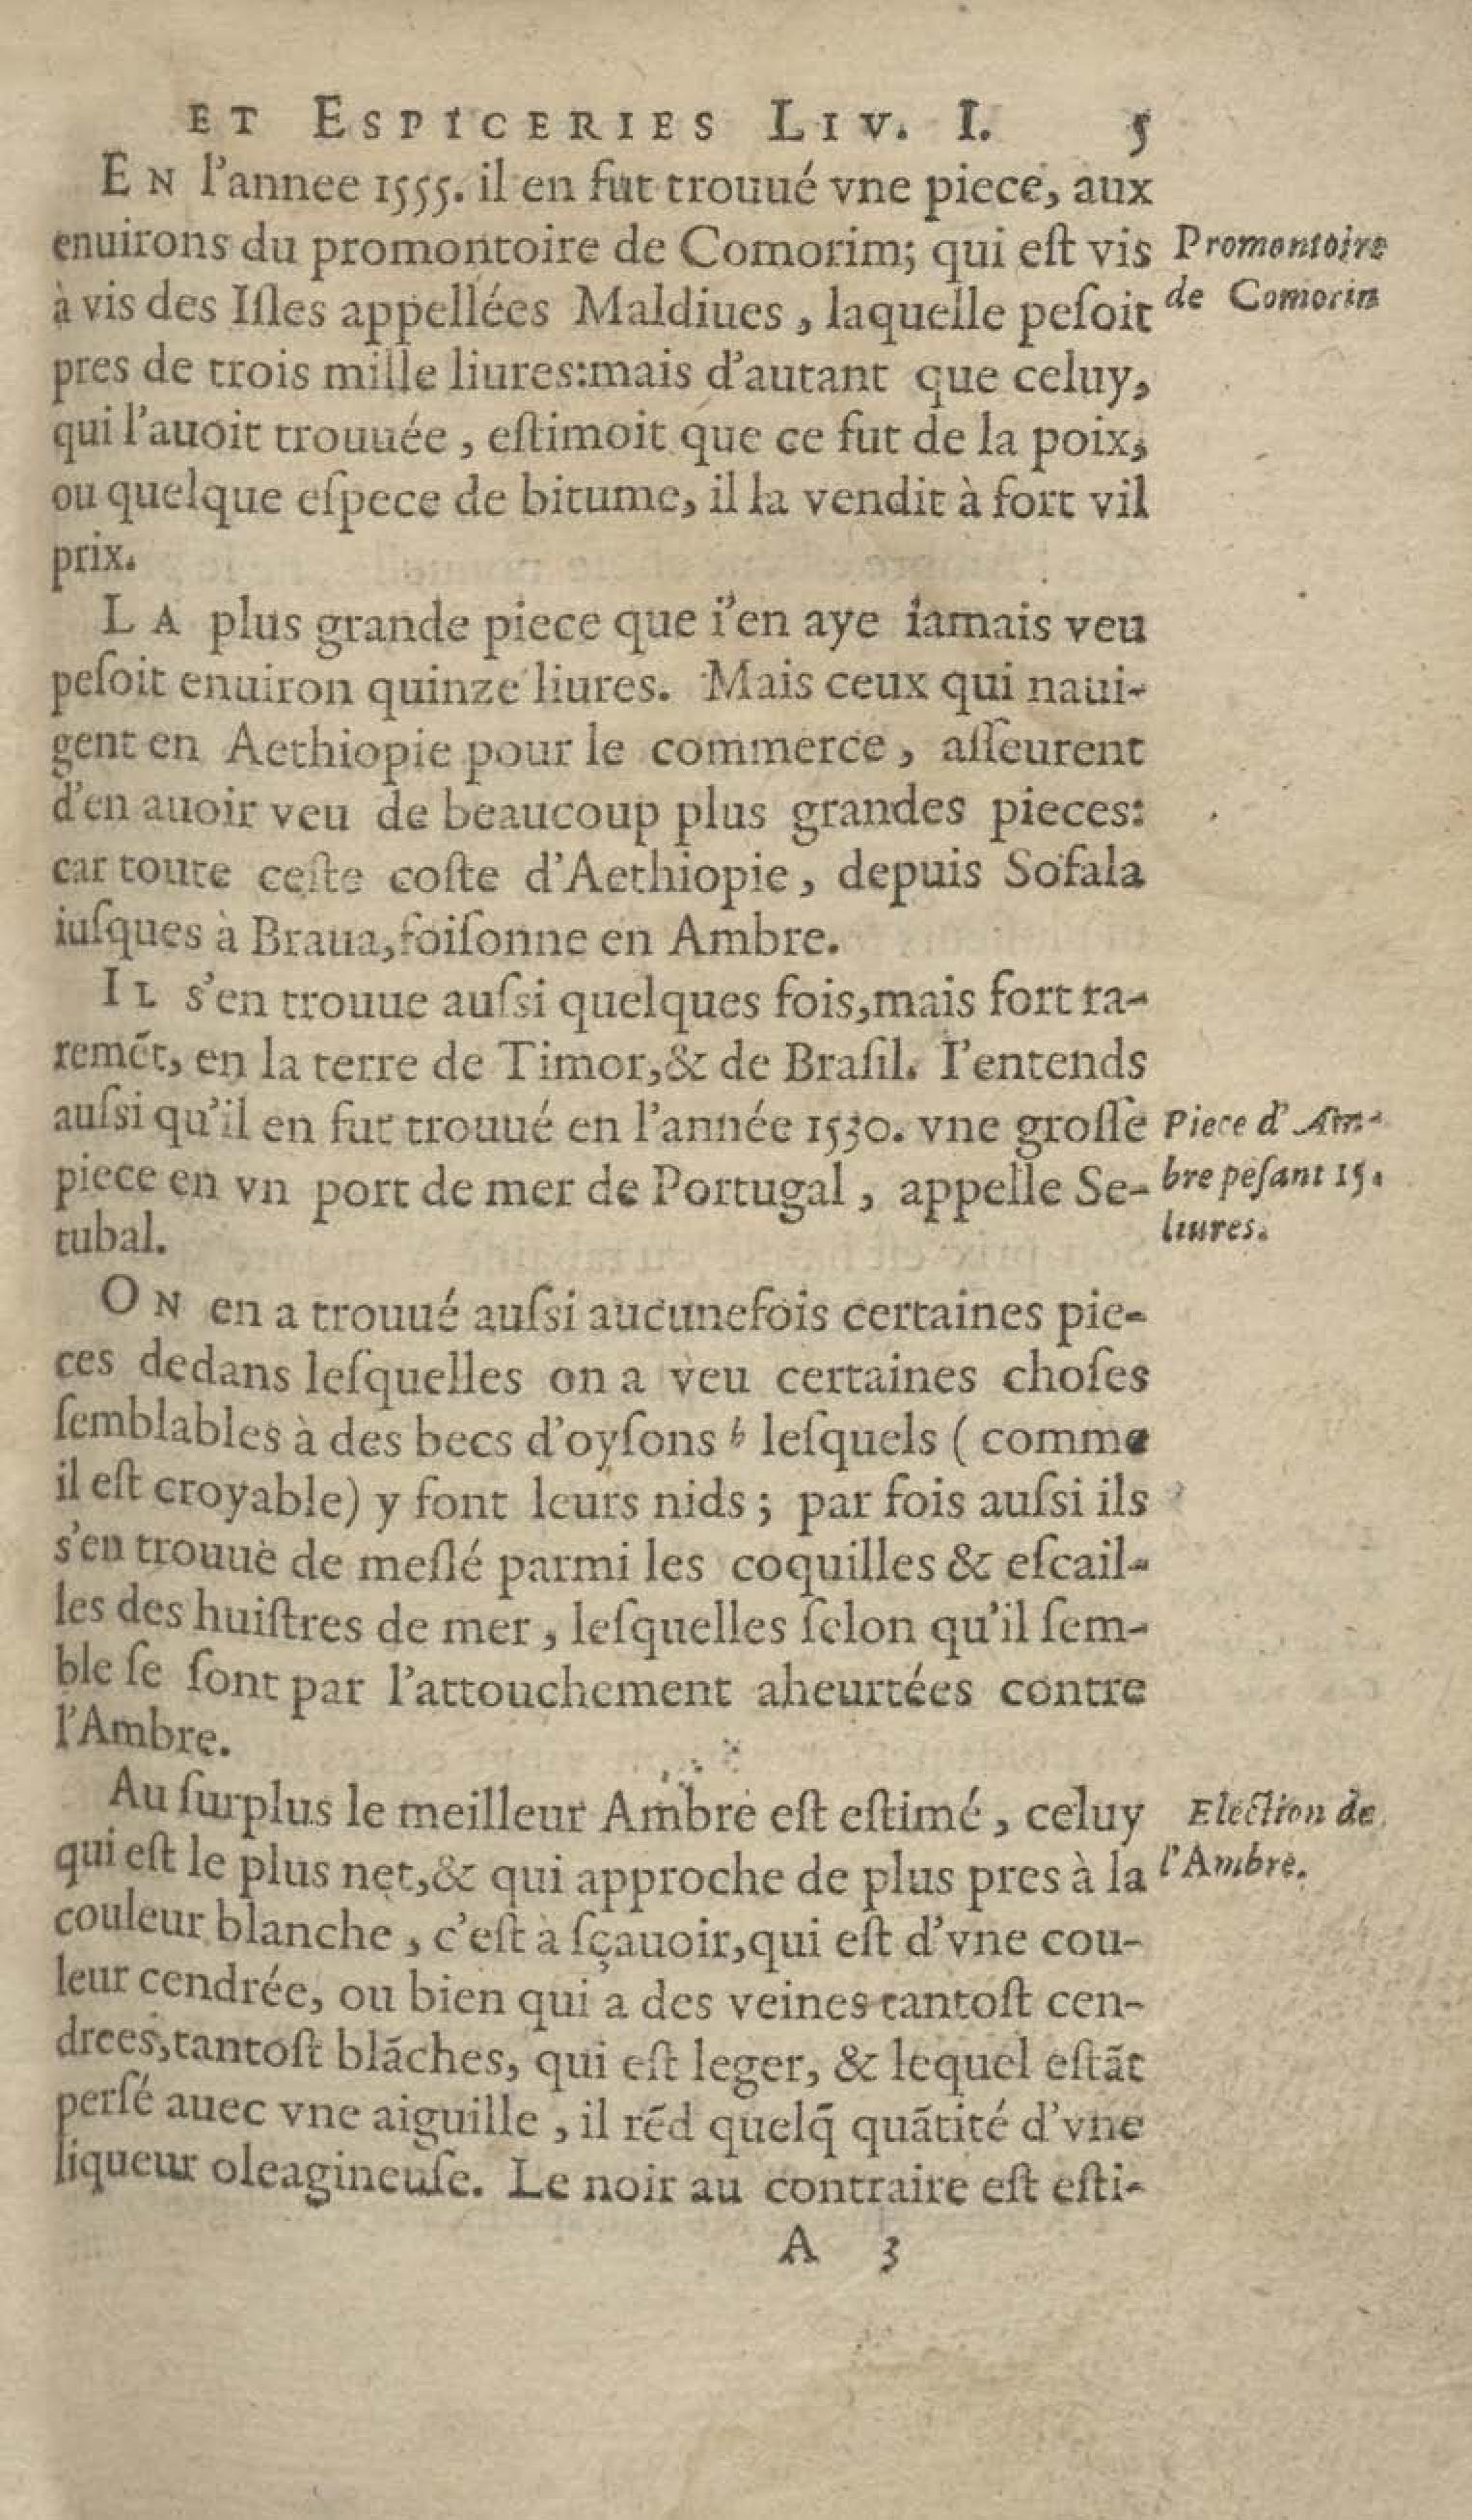 ET ESPICERIES LIV. I. 5
EN l'annee 1555. il en fut trouué vne piece, aux
enuirons du promontoire de Comorim; qui eſt vis
à vis des Iſles appellées Maldiues, laquelle peſoit
pres de trois mille liures:mais d'autant que celuy,
qui l'auoit trouuée, eſtimoit que ce fut de la poix,
ou quelque eſpece de bitume, il la vendit à fort vil
prix.
Promontoire
de Comorin
LA plus grande piece que i'en aye iamais veu
peſoit enuiron quinze liures. Mais ceux qui naui-
gent en Aethiopie pour le commerce, aſſeurent
d'en auoir veu de beaucoup plus grandes pieces:
car toute ceſte coſte d'Aethiopie, depuis Sofala
iuſques à Braua,foiſonne en Ambre.
IL s'en trouue auſsi quelques fois,mais fort ra-
remẽt, en la terre de Timor,& de Braſil. I'entends
auſsi qu'il en fut trouué en l'année 1530. vne groſſe
piece en vn port de mer de Portugal, appelle Se-
tubal.
Piece d'Am-
bre peſant 15.
liures.
ON en a trouué auſsi aucunefois certaines pie-
ces dedans leſquelles on a veu certaines choſes
ſemblables à des becs d'oyſons b leſquels (comme
il eſt croyable) y font leurs nids; par fois auſsi ils
s'en trouue de meſlé parmi les coquilles & eſcail-
les des huiſtres de mer, leſquelles ſelon qu'il ſem-
ble ſe ſont par l'attouchement aheurtées contre
l'Ambre.
Au ſurplus le meilleur Ambre eſt eſtimé, celuy
qui eſt le plus net,& qui approche de plus pres à la
couleur blanche, c'eſt à ſçauoir,qui eſt d'vne cou-
leur cendrée, ou bien qui a des veines tantoſt cen-
drees,tantoſt blãches, qui eſt leger, & lequel eſtãt
perſé auec vne aiguille, il rẽd quelq̃ quãtité d'vne
liqueur oleagineuſe. Le noir au contraire eſt eſti-
Election de
l'Ambre.
A 3